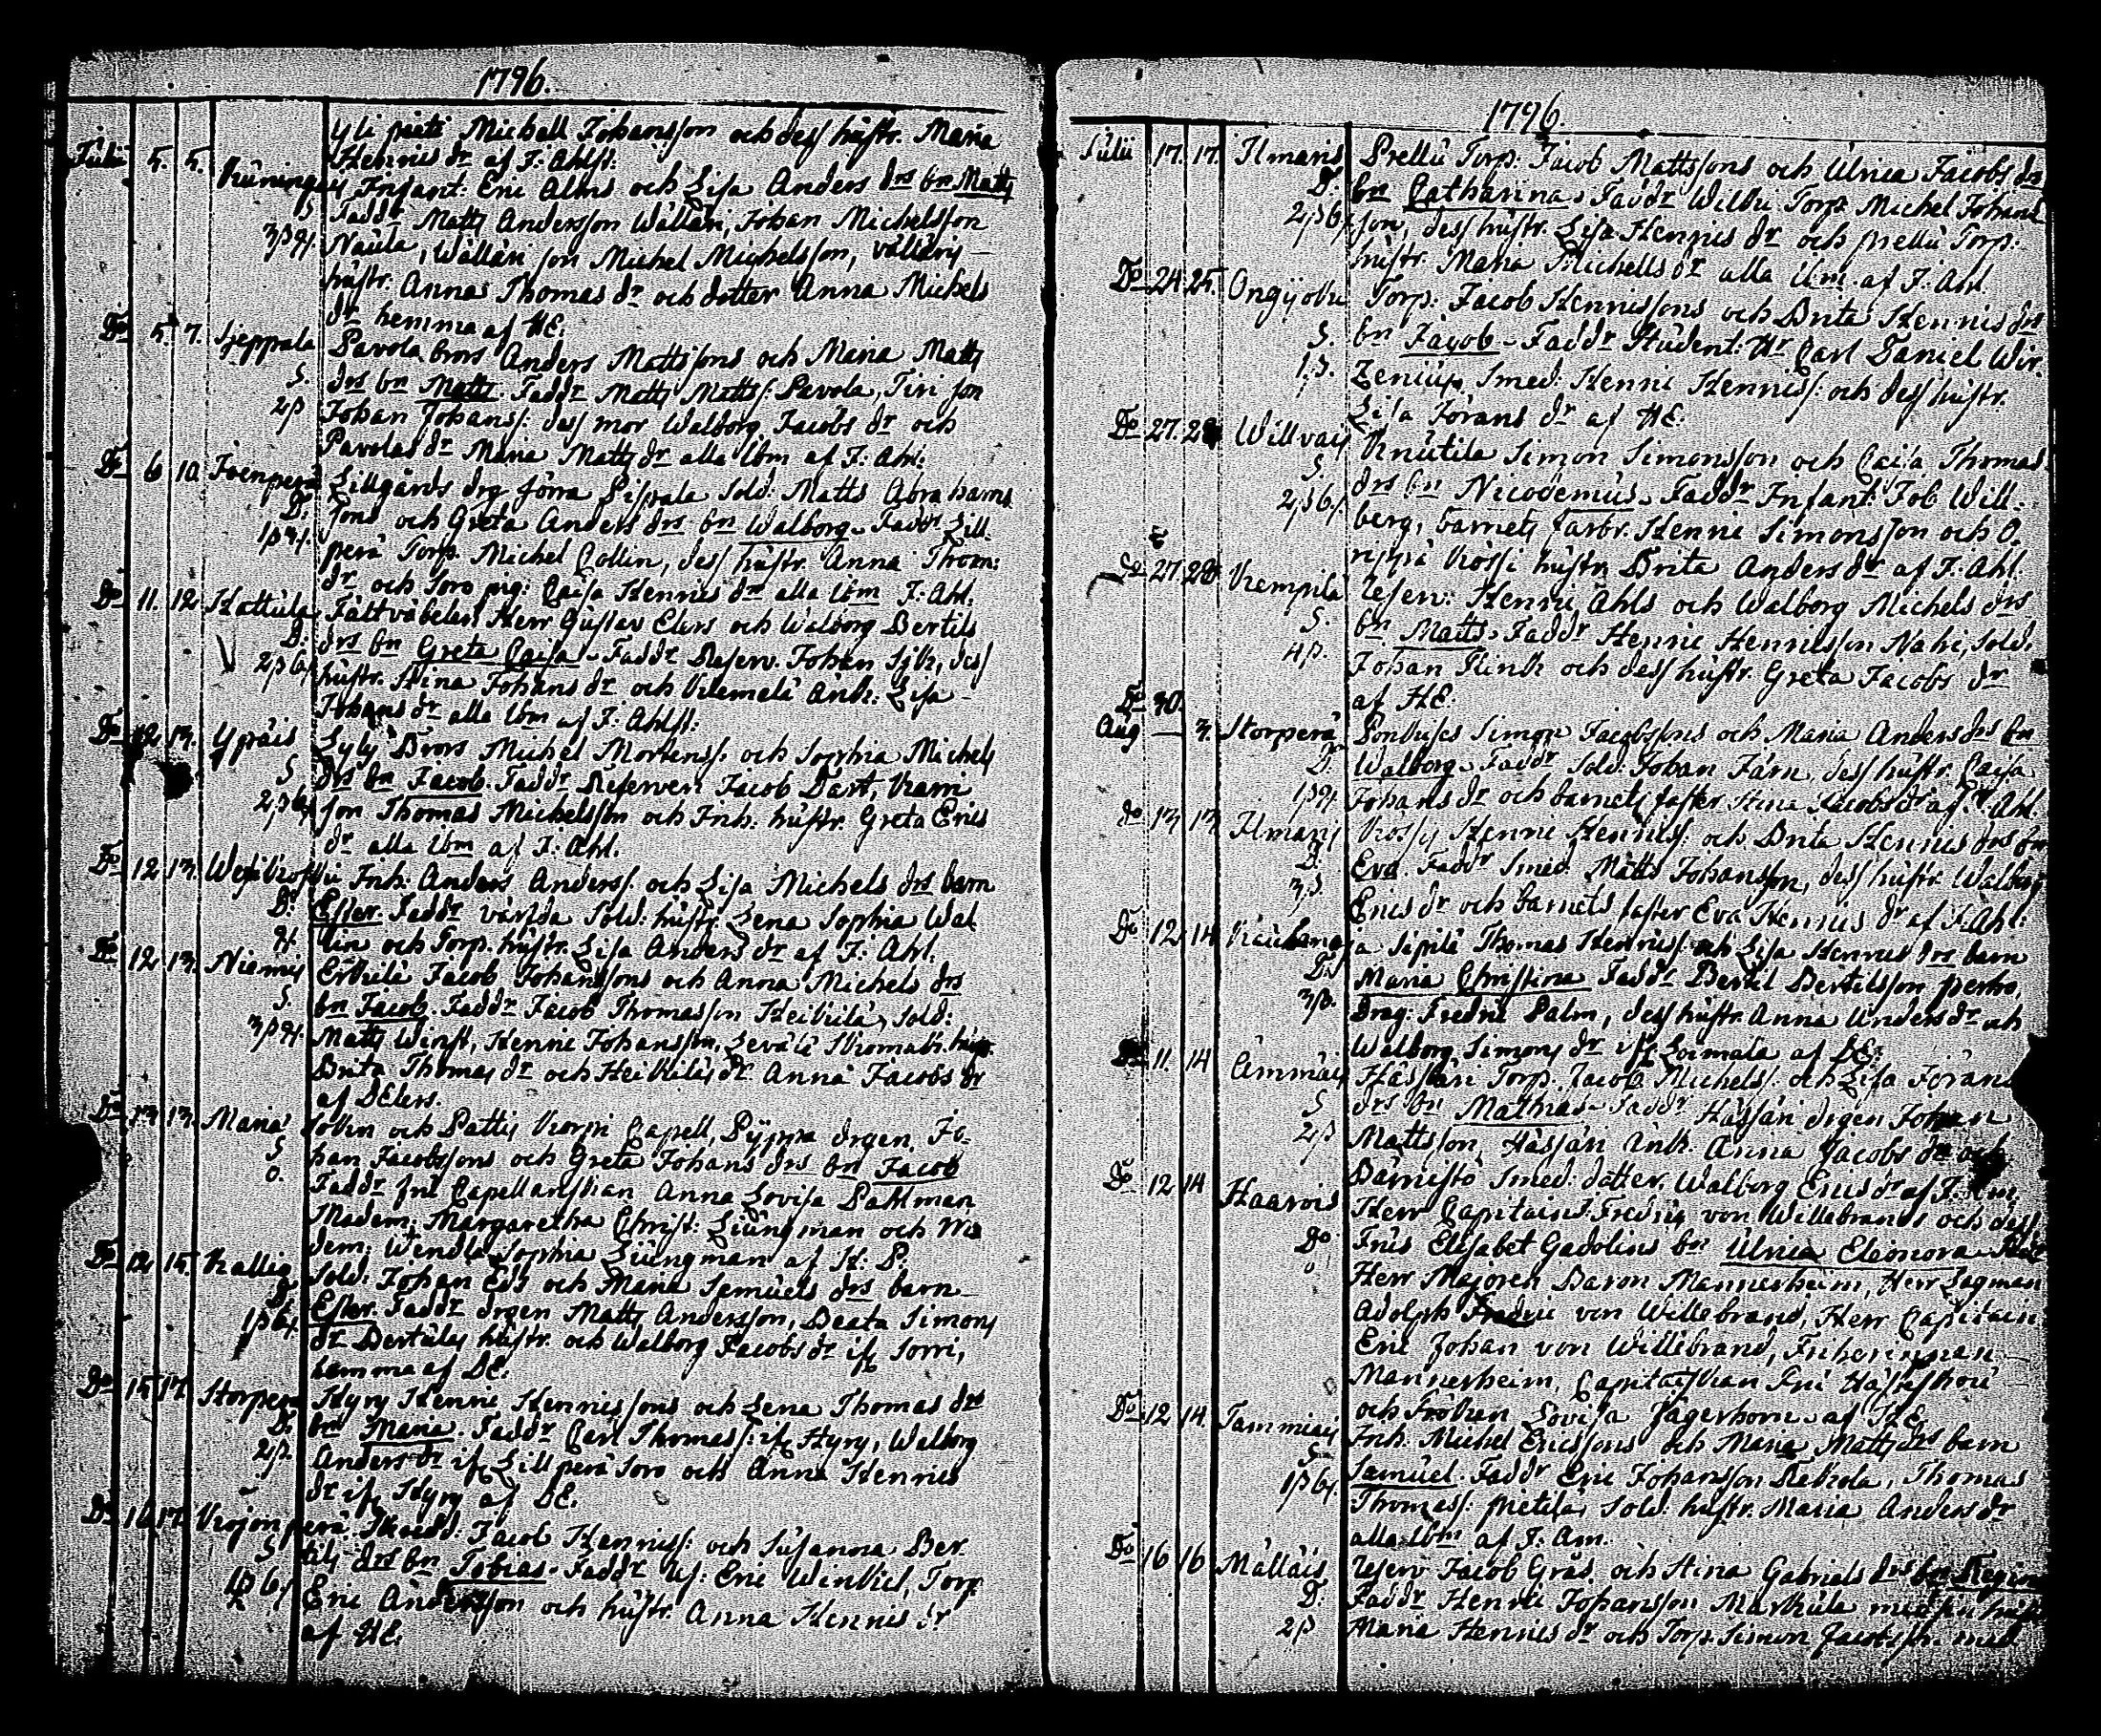 1796.
Yli pieti Michell Johansson och dess hustr. Maria
Henrics dr af J. Ahlst:
Julii 5. 5. Infant: Eric Alms och Lisa Anders drs bn Matts
S Faddr Matts Andersson Wällari, Johan Michelsson
Naula, Wälläri son Michel Michelsson, välläris
hustr. Anna Thomas dr och dotter Anna Michels
dr hemma af HE.
Do 5 7. Sjeppala Pavola brors Anders Mattssons och Maria Matts
S. drs bn Matts. Faddr Matts Matts: Pavola, Tiri son
2ß Johan Johans: dess mor Walborg Jacobs dr och
Pavolas dr Maria Matts dr alla ibm af J: Ahl:
Do 6 10 Joenperä Lillgårds drg förra Sippala Sold: Matts Abrahams
D: sons och Greta Anders drs bn Walborg. Faddr Lill-
perä Torp. Michel Collin, dess hustr. Anna Thom:
dr och Soro pig: Caisa Henrics dr alla ibm J: Ahl.
Do 11. 12 Hattula Fältväbelen Herr Gustav Elers och Walborg Bertils
D. drs bn Greta Caisa. Faddr Reserv. Johan Sjk, dess
hustr. Stina Johans dr och Änk: Lisa
Johans dr alla ibm af J: Ahlst:
Do 12 13. Ypäis Lyly Brors Michel Mortens: och Sophia Michels
S drs bn Jacob. Faddr Reserven Jacob Dart,
son Thomas Michelsson och Inh: hustr. Greta Erics
dr alla ibm af J: Ahl.
Do 12 13. Inh: Anders Anderss. och Lisa Michels drs barn
D: Ester. Faddr värfda Sold: hustr. Lena Sophia Wal
lin och Torp. hustr. Lisa Anders dr af J: Ahl.
Do 12 13. Niemis Erkilä Jacob Johanssons och Anna Michels drs
S. bn Jacob. Faddr Jacob Thomasson Heikilä, Sold:
Matts Winst, Henric Johansson,
Brita Thomas dr och Heikiläs dr Anna Jacobs dr
af DElers.
Do 13 13. Maria Sokn och Pattis Korpi Capell, Pyppa drgen Jo-
S han Jacobssons och Greta Johans drs bn Jacob
0. Faddr fru Capellanskan Anna Lovisa Pahlman
Madem: Margaretha Christ: Liungman och Ma
dem: Wendla Sophia Liungman af H: P.
Do 12 15. Kallio Sold: Johan Ed och Maria Samuels drs barn
D. Ester. Faddr drgen Matts Andersson, Beata Simons
dr Bertulas hustr. och Walborg Jacobs dr ifr Sorri,
hemma af DE.
Do 15 17. Storperä Hyry Henric Henrissons och Lena Thomas drs
D. bn Maria. Faddr Carl Thomass: ifr Hyry, Walborg
2ß. Anders dr ifr Lillperä Soro och Anna Henrics
dr ifr Hyry af DE.
Do 16 17. Krojonperä Skredd: Jacob Henriss: och Susanna Ber
S tils drs bn Tobias. Faddr Us: Eric Winkvist, Torp
Eric Andersson och hustr. Anna Henrics dr
af HE.
1796
Julii 17. 17. Ilmaris Prellu Torp: Jacob Mattssons och Ulrica Jacobs drs
D. bn Catharina. Faddr Wilkri Torp. Michel Johans
son, dess hustr. Lisa Henrics dr och prellu Torp:
hustr. Maria Michells dr alla ibm. af J. Ahl
Do 24 25. Ongijoki Torp: Jacob Henrissons och Brita Henrics drs
S. bn Jacob. Faddr Student: Hr Carl Daniel Wir-
1ß. Zenius, Smed: Henric Henriss: och dess hustr.
Lisa Jörans dr af HE.
Do 27. 28 Willvais Knutila Simon Simonsson och Caisa Thomas
S. drs bn Nicodemus. Faddr Infant: Job Will-
berg, barnets farbr. Henric Simonsson och O.
hustr. Brita Anders dr af J. Ahl.
Do 27. 28 Krempilä Reserv: Henric Ahls och Walborg Michels drs
S. bn Matts. Faddr Henric Henricsson Nahi, Sold:
4ß. Johan Flink och dess hustr. Greta Jacobs dr
af HE.
Do 30.
Aug — 3. Storperä Simon Jacobssons och Maria Anders drs bn
D. Walborg. Faddr Sold: Johan Järn, dess hustr. Caisa
Johans dr och barnets faster Stina Jacobs dr af J. Ahl.
do 13 13 Ilmaris Krössy Henric Henriss: och Brita Henrics drs bn
D: Eva. Faddr Smed: Matts Johansson, dess hustr. Walborg
3ß. Erics dr och barnets faster Eva Henrics dr af J. Ahl:
Do 12 14 Sipilä Thomas Henriss: och Lisa Henrics drs barn
D: Maria Christina Faddr Bertil Bertilsson perho,
3ß. Drag: Fredric Palm, dess hustr. Anna Anders dr och
Walborg Simons dr ifr Loimala af DE.
Do 11. 14 Ämmäis Hässäri Torp. Jacob Michels: och Lisa Jörans
S drs bn Mathias. Faddr Hässäri drgen Johan
2ß Mattsson, Hässäri Änk: Anna Jacobs dr och
Smed: dotter, Walborg Erics dr af J: Am.
Do 12 14 Haarois Herr Capitains Fredric von Willebrands och dess
Do Frus Elisabet Gadolins bn Ulrica Eleonora.
Herr Majoren Baron Mannerheim, Herr Lagman
Adolph Fredric von Willebrand, Herr Capitain
Eric Johan von Willebrand, Friherrinnan
Mannerheim, Capitainskan Fru
och Fröken Lovisa Jägerhorn af HE
Do 12 14. Tammiais Inh: Michel Ericssons och Maria Matts drs barn
S Samuel. Faddr Eric Johansson Rekola, Thomas
Thomass: pietilä, Sold: hustr. Maria Anders dr
alla ibm af J: Am.
Do 16 16 Mälläis Reserv Jacob Gräs och Stina Gabriels drs bn Regina
D. Faddr Henric Johansson Markula med sin hustr
2ß Maria Henrics dr och Torp. Simon Jacobsson med